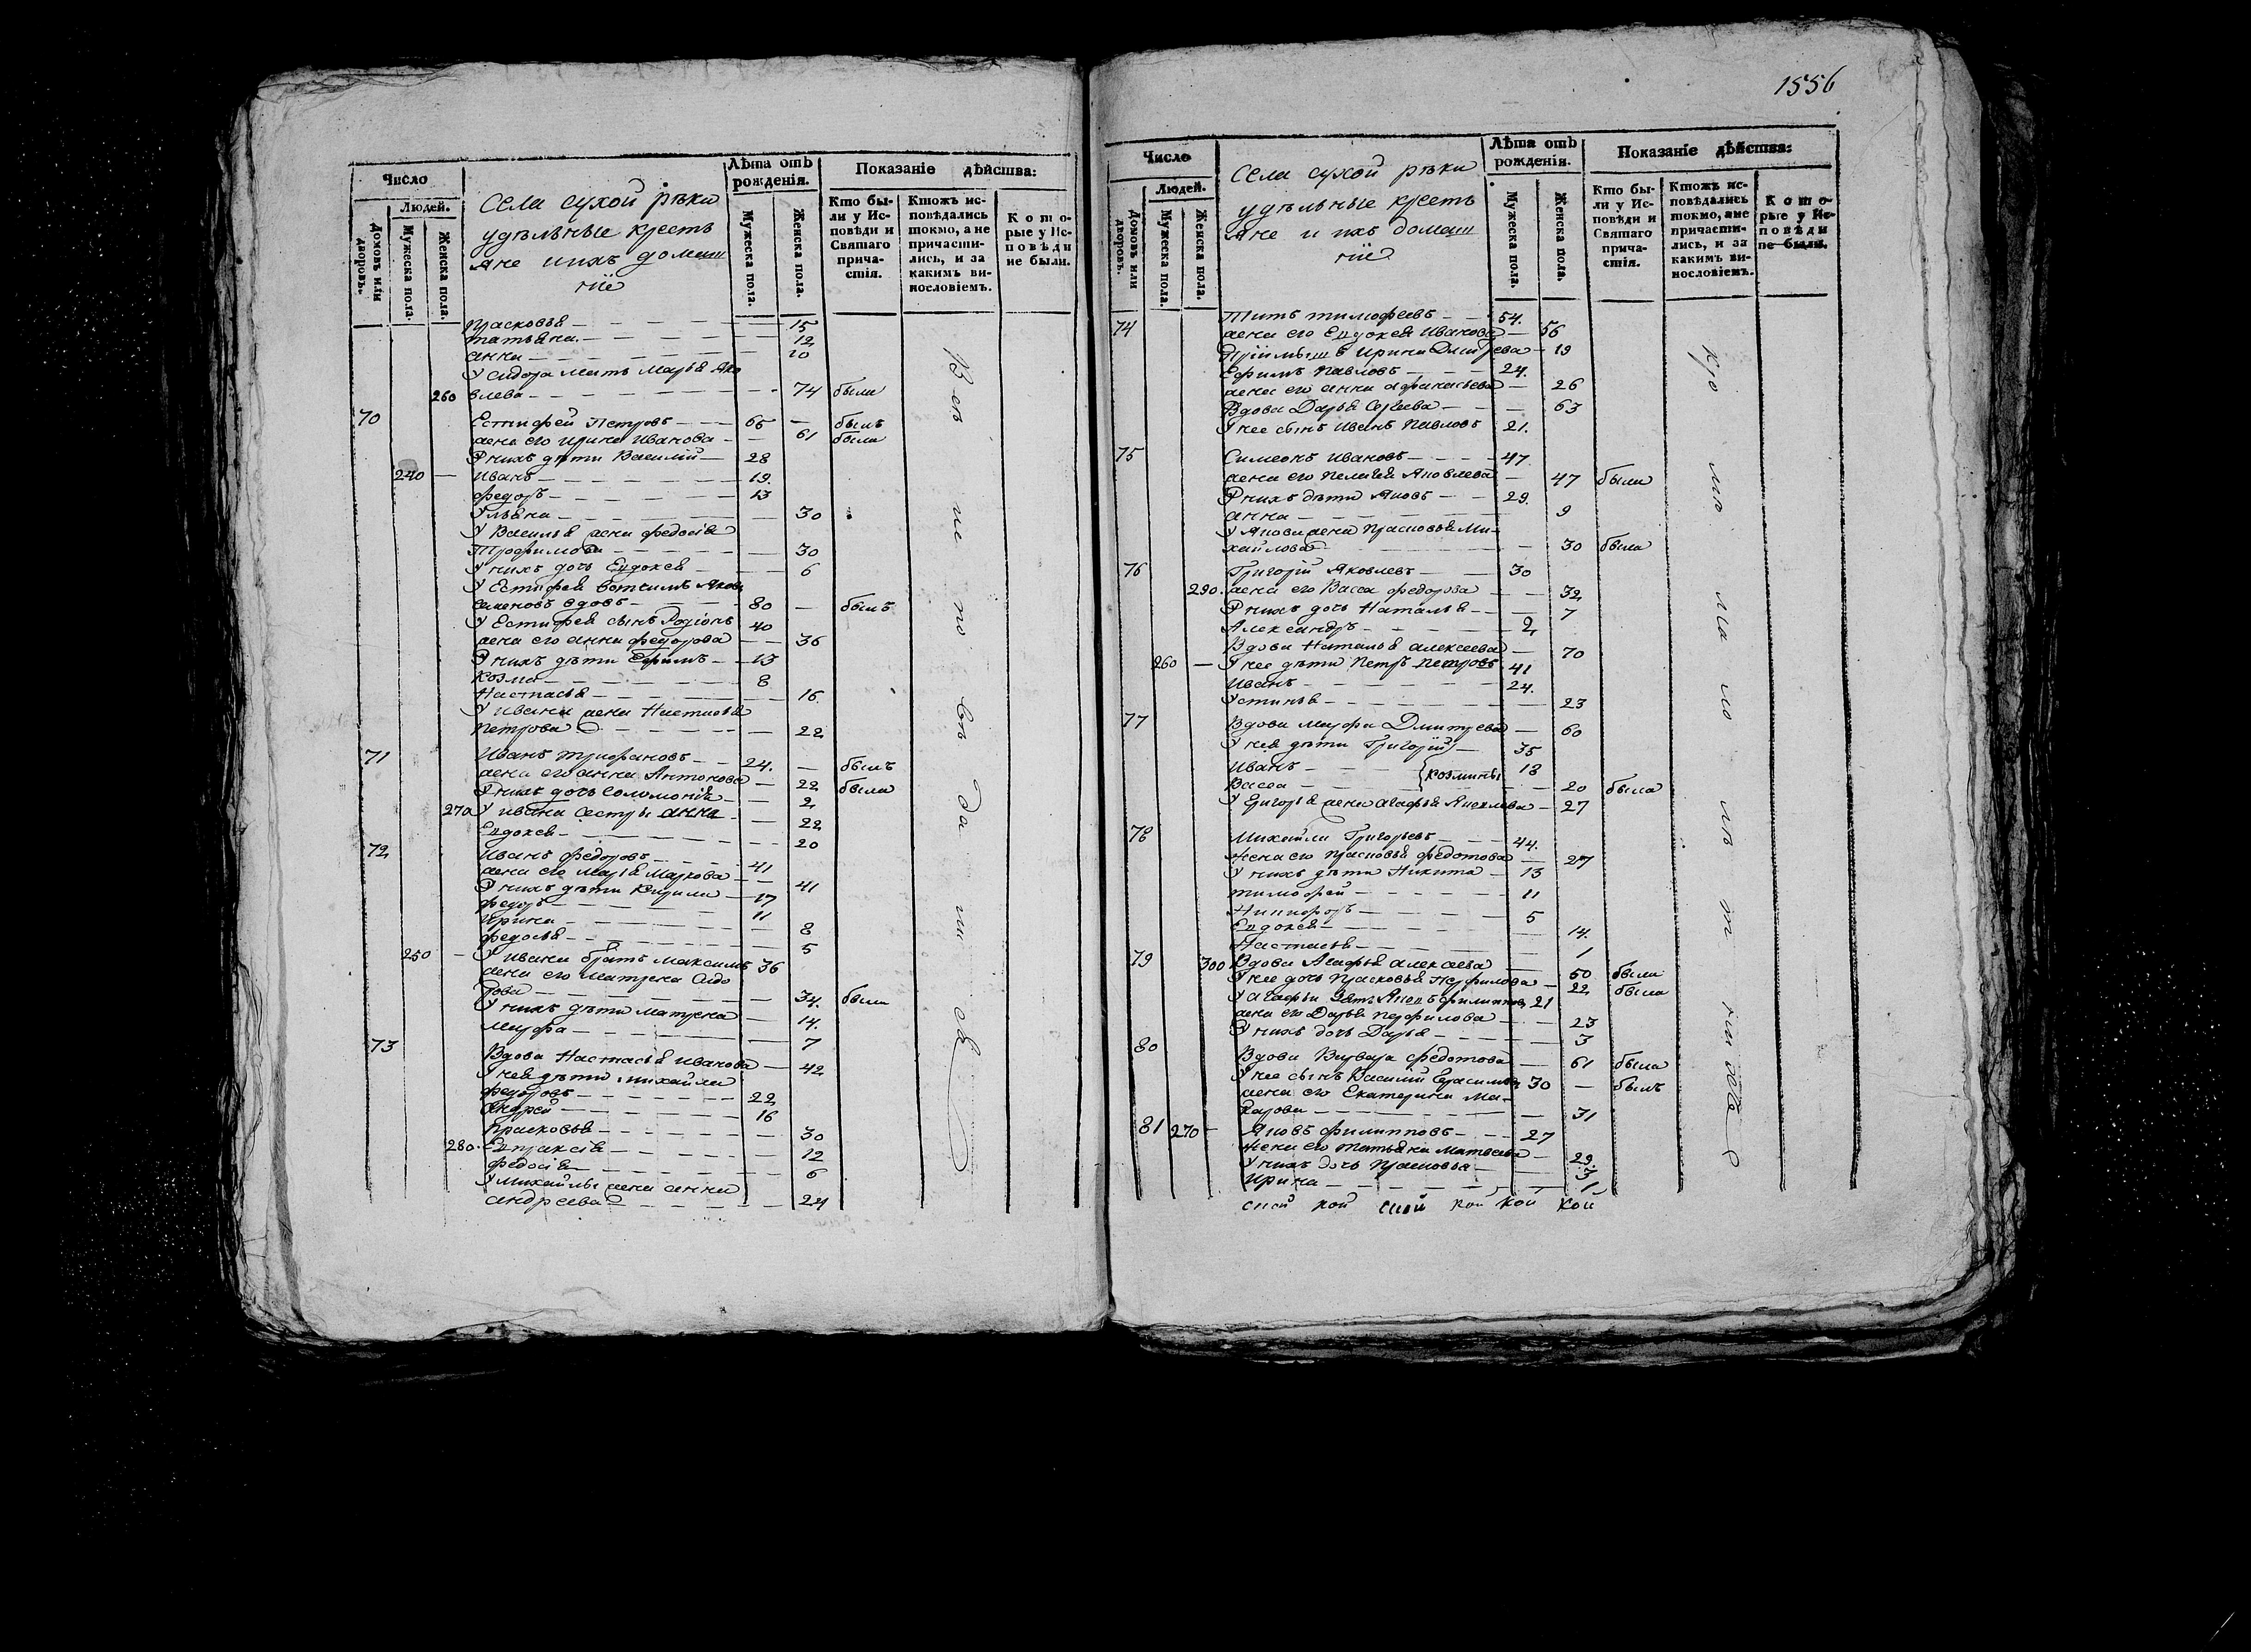 1556
Число
Людей.
Домовъ или дворовъ.
Мужеска пола.
Женска пола.
Села сухой рѣки
удѣльные кресть
яне и ихъ домаш
ніе
Лѣта отъ рожденія.
Мужеска пола.
Женска пола.
Показаніе дѣйства:
Кто были у Исповѣди и Святаго причастія.
Ктожъ исповѣдались токмо, а не причастились, и за какимъ винословіемъ.
Которые у Исповѣди не были.
Прасковья 15
татьяна 12
анна 10
У сидора мать Марья Яко
260 влева 74 была
70 Естифей Петровъ 65 былъ
жена его ирина Иванова 61 была
У нихъ дѣти Василій 28
240 Иванъ 19.
федоръ 13
Ульяна 30
У Василья жена федосія
Трофимова 30
У нихъ дочь Евдокея 6
У Естифея вотчимъ Яковъ
Семеновъ вдовъ 80 былъ
У Естифея сынъ Родіонъ 40
жена его анна федорова 36
У нихъ дѣти Ефимъ 13
Козма 8
Настасья 16.
У ивана жена Настасья
Петрова 22
71 Иванъ трифановъ 24. былъ
жена его анна Антонова 22 была
У нихъ дочь Соломонія 2
270 У ивана сестры анна 22
Евдокея 20
72 Иванъ федоровъ 41
жена его Марія Маркова 41
У нихъ дѣти Кирила 17
федоръ 11
ирина 8
федосья 5
250 У ивана братъ Максимъ 36
жена его Матрена Сидо
рова 34. была
У нихъ дѣти матрена 14.
марфа 7
73 Вдова Настасья иванова 42
У нея дѣти михайла
федоровъ 22
Андрей 16
Прасковья 30
280. Евпраксія 12
федосія 6
У михайлы жена анна
андреева 24
Число
Людей.
Домовъ или дворовъ.
Мужеска пола.
Женска пола.
Села сухой рѣки
удѣльные кресть
яне и ихъ домаш
ніе
Лѣта отъ рожденія.
Мужеска пола.
Женска пола.
Показаніе дѣйства:
Кто были у Исповѣди и Святаго причастія.
Ктожъ исповѣдались токмо, а не причастились, и за какимъ винословіемъ.
Которые у Исповѣди не были.
74 Титъ тимофеевъ 54.
жена его Евдокея Иванова 56
Пріймышъ ирина Дмитрева 19
Ефимъ Павловъ 24.
жена его анна афанасьева 26
Вдова Дарья Сергеева 63
У нее сынъ Иванъ Павловъ 21.
75 Симеонъ Ивановъ 47.
жена его Пелагея Яковлева 47 были
У нихъ дѣти Яковъ 29.
анна 9
У Якова жена Прасковья Ми-
хайлова 30 была
76 Григорій Яковлевъ 30
290. жена его Васса федорова 32
У нихъ дочь Наталья 7
Александръ 2
Вдова Наталья алексеева 70
260 У нее дѣти Петръ Петровъ 41
Иванъ 24.
Устинья 23
77 Вдова марфа Дмитрева 60
У нея дѣти Григорій 35
Иванъ козмины 18
Васса 20 была
У Григорья жена агафья Яковлева 27
78 Михайла Григорьевъ 44.
жена его Прасковья федотова 27
У нихъ дѣти Никита 13
тимофей 11
Никифоръ 5
Евдокея 14.
Настасья 1
79 300 Вдова Агафья алексаева 50 была
У нее дочь Прасковья Перфилова 22 была
У агафьи зять Яковъ филипповъ 21
жена его Дарья перфилова 23
У нихъ дочь Дарья 3
80 Вдова Варвара федотова 61 была
У нее сынъ Василій Герасимовъ 30 былъ
жена его Екатерина Ма-
карова 31
81 270 Яковъ филипповъ 27
жена его татьяна матвеева 29.
У нихъ дочь Прасковья 3
ирина 1